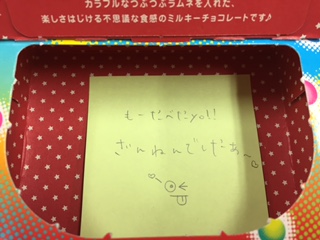 カラフルなつぶつぶラムネを入れた、
楽しさはじける不思議な食感のミルキーチョコレートです♪
もーたべたyo!!
ざんねんでしたぁ〜